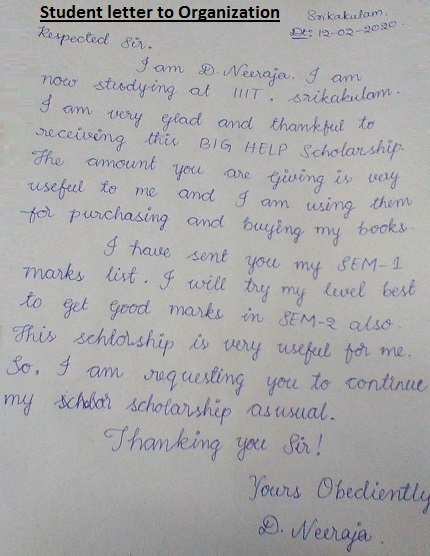 Student letter to Organization
Srikakulam,
Dt: 12-02-2020.
Respected Sir.
I am D. Neeraja. I am
now studying at IIIT, srikakulam.
I am very glad and thankful to
receiving this BIG HELP Scholarship.
The amount you are giving is very
useful to me and I am using them
for purchasing and buying my books.
I have sent you my SEM-1
marks list. I will try my level best
to get good marks in SEM-2 also.
This schlorship is very useful for me.
So, I am requesting you to continue
my scholor scholarship asusual.
Thanking you Sir!
Yours Obediently
D. Neeraja.